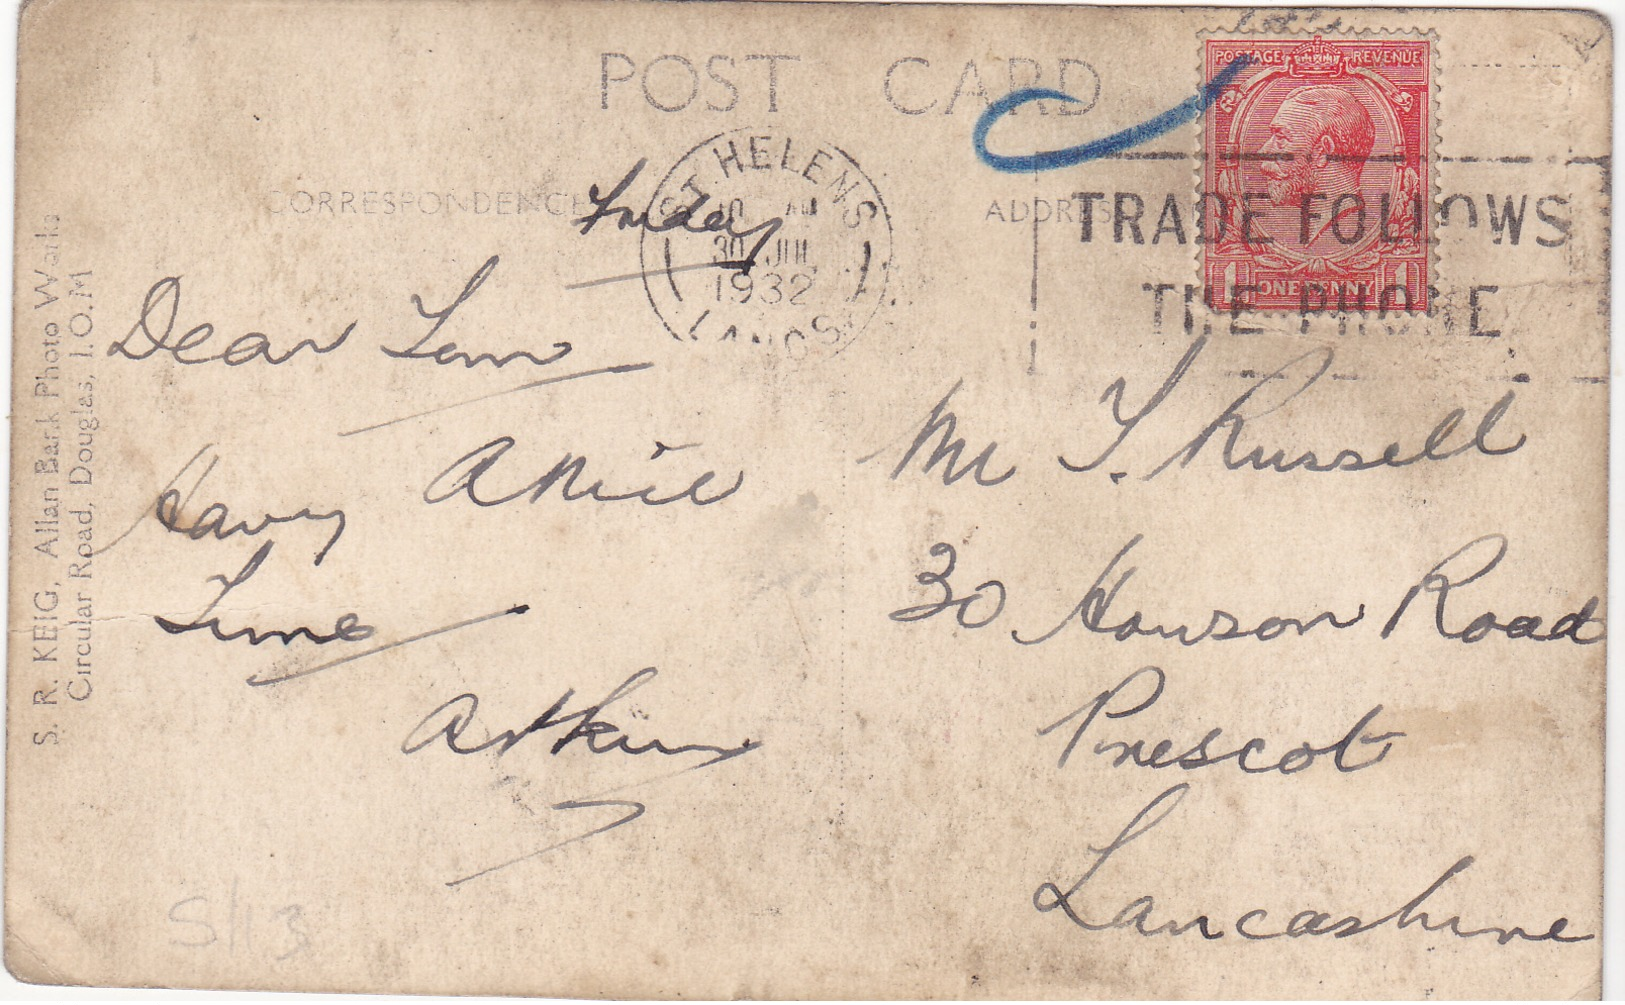 POST CARD
CORRESPONDENCE
ADDRESS
Friday
ST HELENS
10 AM
30 JUL
1932
LANCS
POSTAGE REVENUE
1 ONE PENNY 1
TRADE FOLLOWS
THE PHONE
Dear Tom
Having A Nice
Time
Mr T. Russell
30 Howson Road
Prescot
Lancashire
S. R. KEIG, Allan Bank Photo Works
Circular Road, Douglas, I.O.M
S113